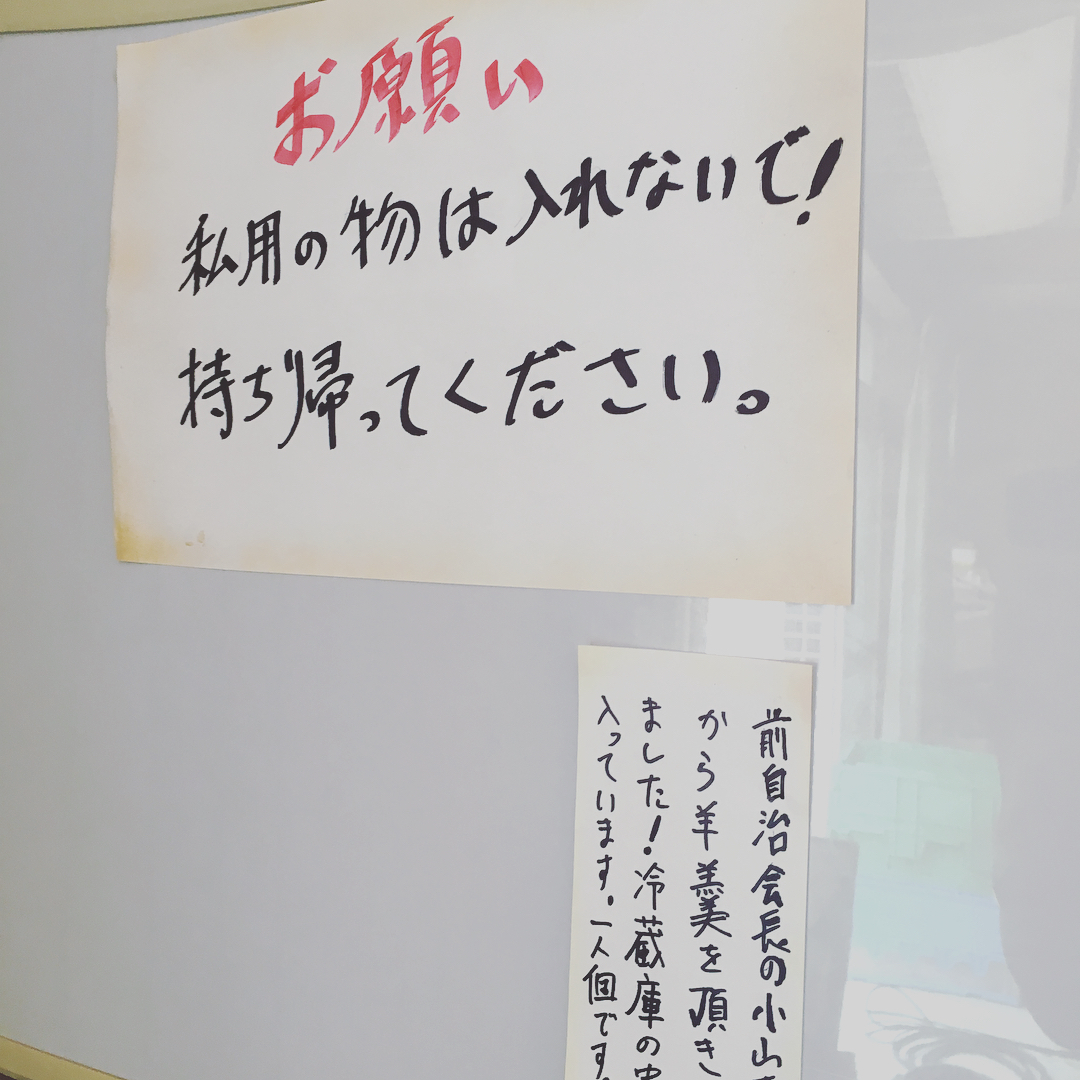 お願い
私用の物は入れないで!
持ち帰ってください。
前自治会長の小山
から羊羹を頂き
ました!冷蔵庫の中
入っています。一人個です。